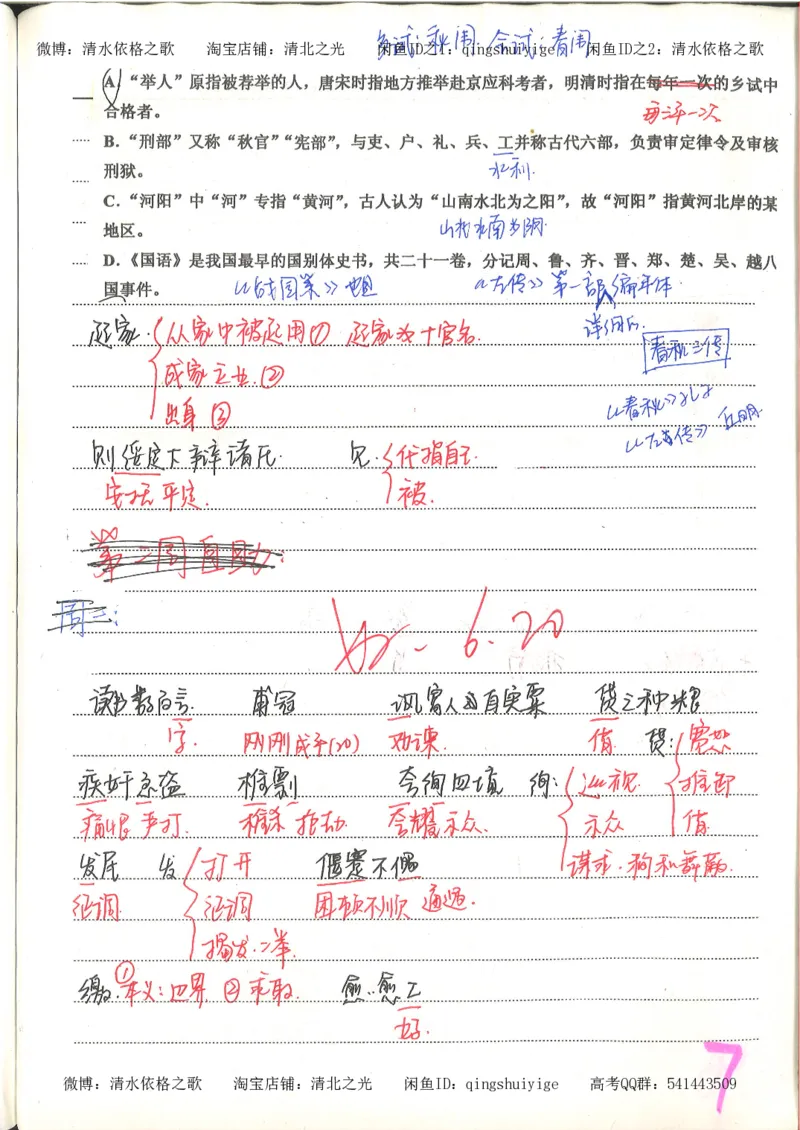 微博：清水依格之歌 淘宝店铺：清北之光 闲鱼ID之1：qingshuiyige 闲鱼ID之2：清水依格之歌
乡试：秋闱 会试：春闱
A.“举人”原指被荐举的人，唐宋时指地方推举赴京应科考者，明清时指在每年一次的乡试中
合格者。
每三年一次
B.“刑部”又称“秋官”“宪部”，与吏、户、礼、兵、工并称古代六部，负责审定律令及审核
刑狱。
水利.
C.“河阳”中“河”专指“黄河”，古人认为“山南水北为之阳”，故“河阳”指黄河北岸的某
地区。
山北水南为阴.
D.《国语》是我国最早的国别体史书，共二十一卷，分记周、鲁、齐、晋、郑、楚、吴、越八
国事件。
《战国策》 《左传》第一部编年体.
详细的.
起家. 从家中被起用① 起家为+官名.
春秋三传
成家立业.②
出身③
《春秋》
《左传》 丘明.
则绥定下辩诸氏. 见. 代指自己.
安抚平定. 被.
第二周自助:
周三:
6.20
读书数百言. 甫冠 讽富人出直实粟 贷之种粮
字. 刚刚成年(20) 劝谏. 借 贷: 宽恕
疾奸亟盗 椎剽 夸徇四境 徇: 巡视. 推卸
痛恨 严打. 椎杀 抢劫. 夸耀示众. 示众 借
发民 发 打开 偃蹇不偶 谋求.
征调. 征调 困顿不顺 遭遇.
揭发.
①本义:边界 ②求取. 愈..愈工
好.
微博：清水依格之歌 淘宝店铺：清北之光 闲鱼ID：qingshuiyige 高考QQ群：541443509
7